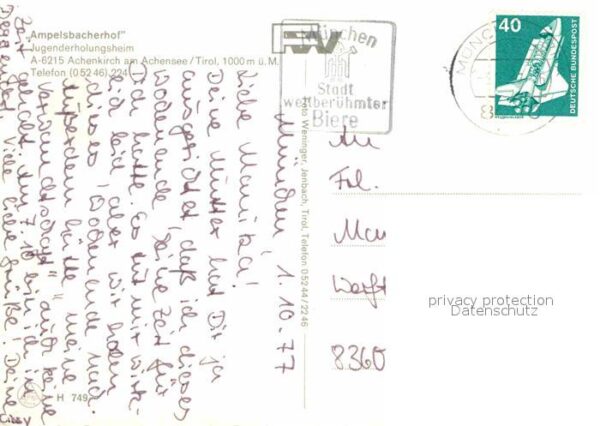 Ampelsbacherhof"
Jugenderholungsheim
A-6215 Achenkirch am Achensee / Tirol, 1000 m ü. M.
Telefon (0 52 46) 224
München
Stadt
weltberühmter
Biere
40
DEUTSCHE BUNDESPOST
Foto Weninger, Jenbach, Tirol, Telefon 0 52 44 / 2246
München, 1.10.77
Liebe Manuela!
Deine Mutter hat Dir ja
ausgerichtet, daß ich dieses
Wochenende keine Zeit für
Dich hatte. Es tut mir wirk-
lich leid, aber wir haben
dieses Wochenende nach
Außerdem hätte meine
Verwandtschaft" auch keine
Zeit gehabt. Am 7.10. bin ich in
viele liebe Grüße! Deine
An
Frl.
8360
privacy protection
Datenschutz
H 749